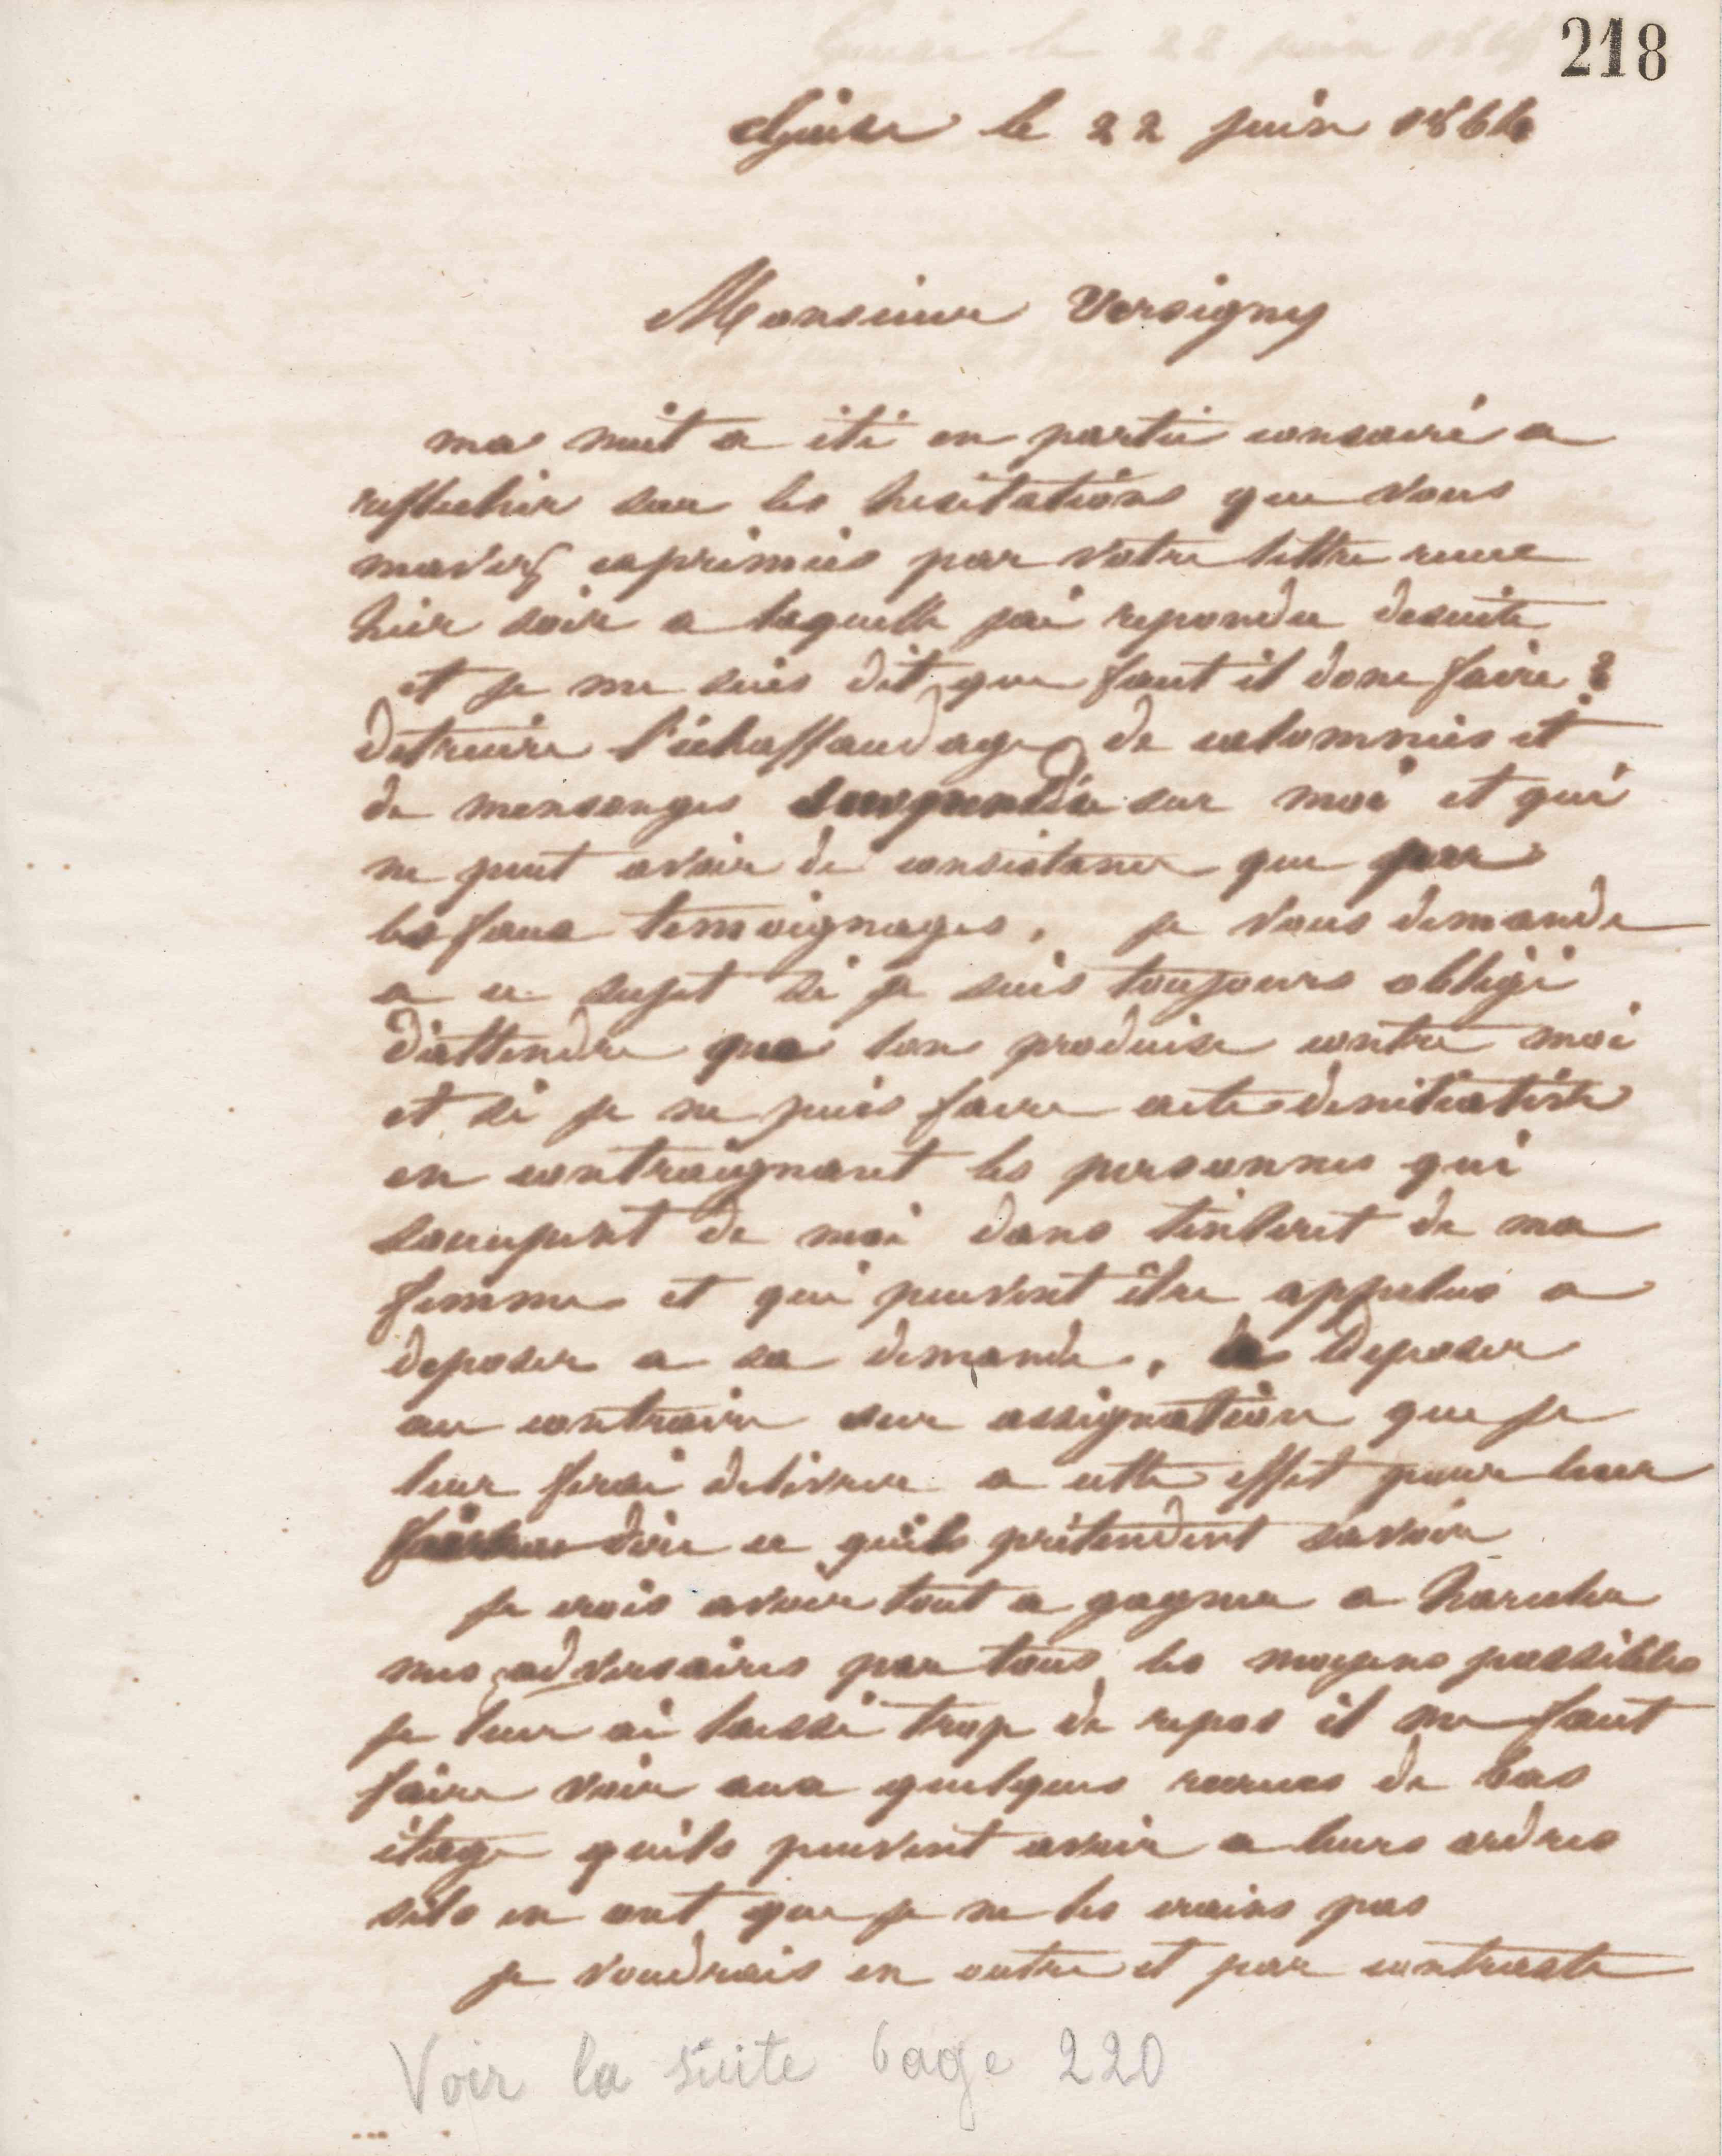 218
Guise le 22 juin 1866
Monsieur Versigny
ma nuit a été en partie consacré a
reflechir sur les hesitations que vous
mavez exprimées par votre lettre recue
hier soir a laquelle jai repondu desuite
et je me suis dit que faut il donc faire ?
detruire l'échaffaudage de calomnies et
de mensonges sur moi et qui
ne peut avoir de consistance que par
les faux temoignages. je vous demande
a ce sujet si je suis toujours obligé
d'attendre que lon produise contre moi
et si je ne puis faire acte dinitiative
en contraignant les personnes qui
soccupent de moi dans linteret de ma
femme et qui peuvent être appelees a
deposer a sa demande, a deposer
au contraire sur assignation que je
leur ferai delivrer a cette effet pour leur
faire dire ce quils prétendent savoir
je crois avoir tout a gagner a harceler
mes adversaires par tous les moyens possibles
je leur ai laissé trop de repos il me faut
faire voir aux quelques recrues de bas
étage quils peuvent avoir a leurs ordres
sils en ont que je ne les crains pas
je voudrais en outre et par contraste
Voir la suite page 220